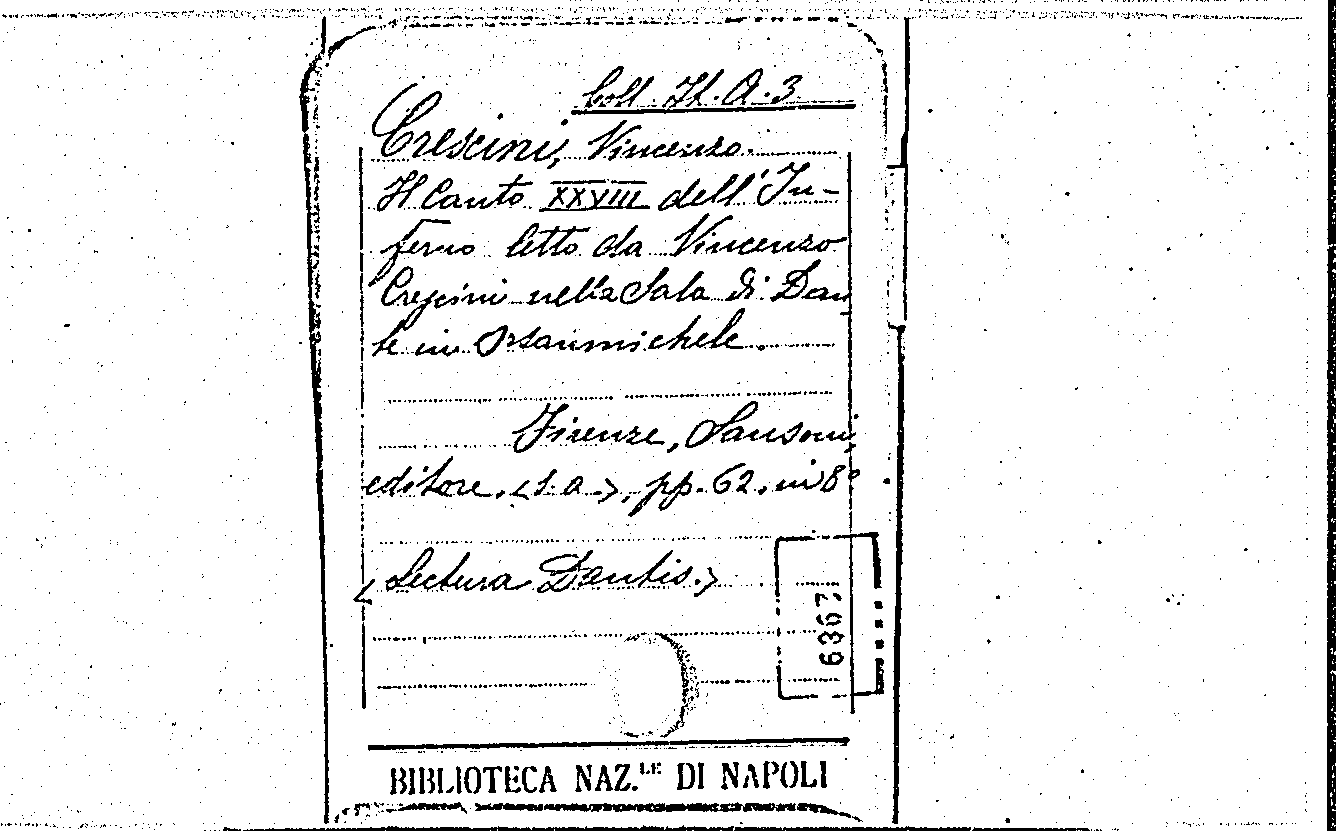 Coll. It. A. 3
Crescini, Vincenzo.
Il Canto XXVIII dell'In-
ferno letto da Vincenzo
Crescini nella Sala di Dan
te in Orsanmichele.
Firenze, Sansoni,
editore. <s. a.>, pp. 62. in 8°
<Lectura Dantis.>
6367
BIBLIOTECA NAZ.LE DI NAPOLI